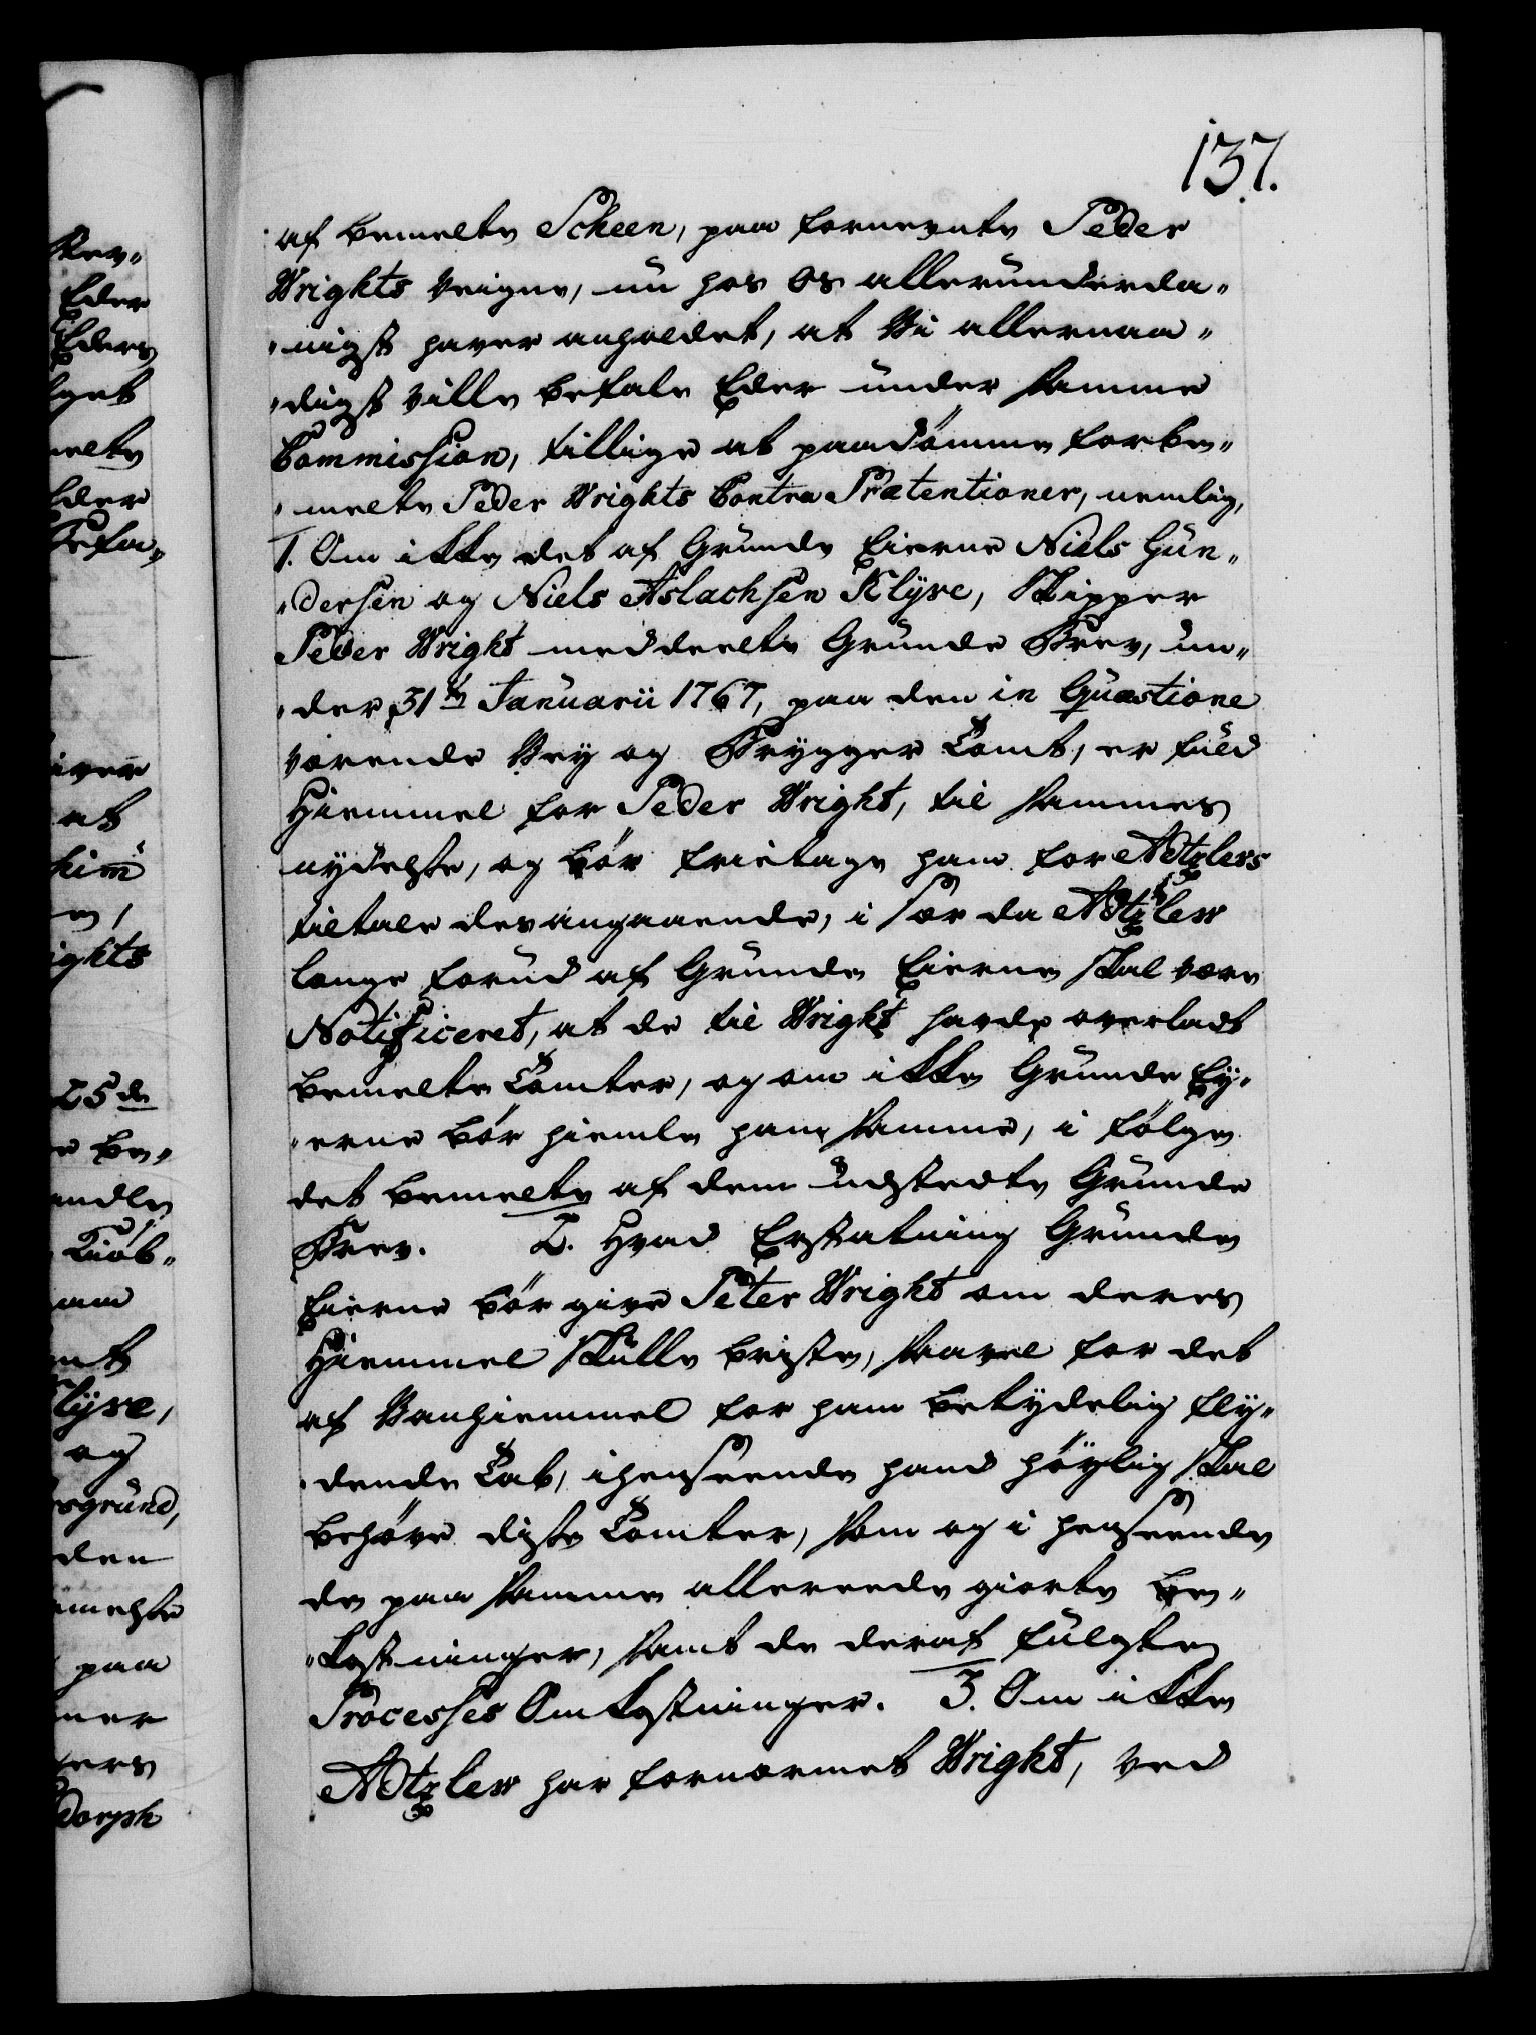 137.
af bemelte Scheen, paa fornevnte Peder
Wrights Veigne, nu hos Os allerunderda„
„nigst haver anholdet, at Vi allernaa„
„digst ville befale Eder under samme
Commission, tillige at paadömme forbe„
„melte Peder Wrights Contra Prætentioner, nemlig,
1. Om ikke det af Grunde Eierne Niels Gun„
„dersen og Niels Aslachsen Klyve, Skipper
Peder Wright meddeelte Grunde Brev, un„
„der 31te Januarii 1767, paa den in Quæstione
værende Vey og Brygger Tomt, er fuld
Hiemmel for Peder Wright, til sammes
nydelse, og bör frietage ham for Adtzlers
tiltale desangaaende, i sær da Adtzlew
lange forud af Grunde Eierne skal være
Notificeret, at de til Wright havde overladt
bemelte Tomter, og om ikke Grunde Ey„
„erne bör hiemle ham samme, i fölge
det bemelte af dem udstedte Grunde
Brev. 2. Hvad Erstatning Grunde
Eierne bör give Peter Wright om deres
Hiemmel skulle briste, saavel for det
af Vanhiemmel for ham betydelig fly„
„dende Tab, ihenseende hand höylig skal
behöve disse Tomter, som og i henseende
de paa samme allereede giorte Be„
„kostninger, samt de deraf fulgte
Processes Omkostninger. 3. Om ikke
Adtzlew har fornærmet Wright, ved